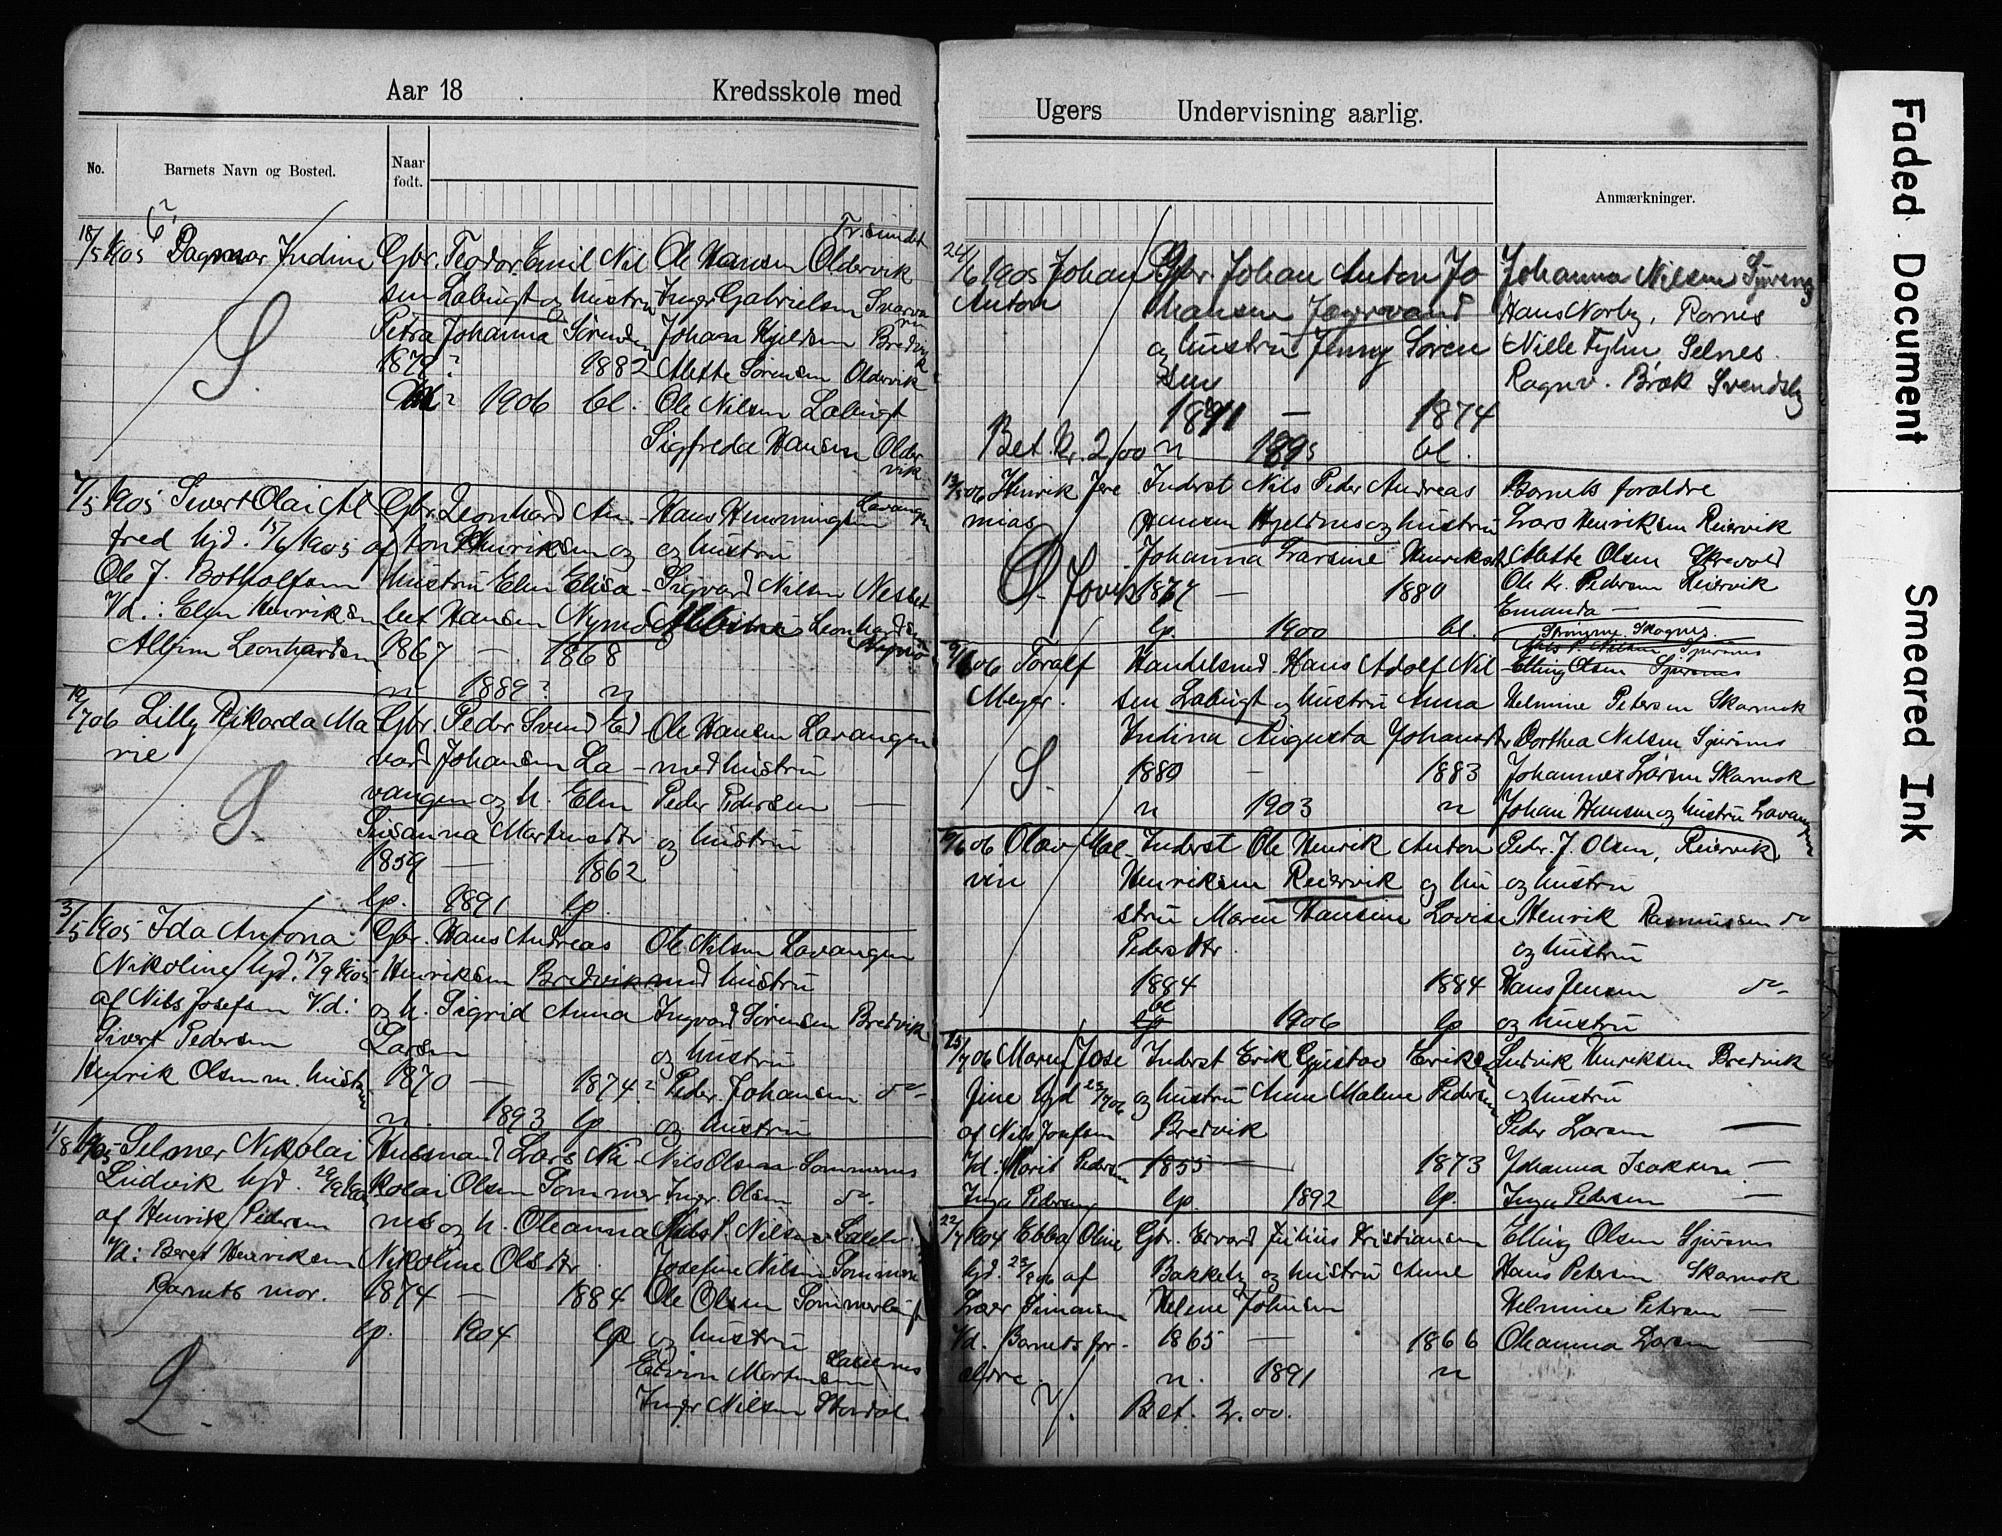 Aar 18 Kredsskole med
No. Barnets Navn og Bosted. Naar født.
18/5 1905 Dagmar Indine
Gbr. Teodor Emil Nil
sen Labugt og hustru
Petra Johanna Sørensen
187 ? 1882
1906 bl.
Tr.sundet
Ole Hansen Oldervik
Inger Gabrielsen Svarva
Johan Hjeldsen Bredvik
Mette Sørensen Oldervik
Ole Nilsen Labugt
Sigfreda Hansen Older
vik
S.
7/5 1905 Sivert Olai Al
fred hjd. 15/6 1905 af
Ole J. Bottolfsen
Vd.: Elen Henriksen
Albin Leonhardsen
Gbr. Leonhard An-
ton Henriksen og
hustru Elen Elisa-
bet Hansen Nymo
1867 — 1868
n 1889? n
Hans Hemmingsen Lavangen
og hustru
Sigvard Nilsen Nesset
Albine Leonhardsen
19/7 06 Lilly Rikarda Ma
rie
Gbr. Peder Svend Ed
vard Johansen La-
vangen og h. Elen
Susanna Martensdtr
1859 — 1862
lp. 1891 lp.
Ole Hansen Lavangen
med hustru
Peder Pedersen —
og hustru
S.
3/5 1905 Ida Antona
Nikoline hjd. 17/9 1905
af Nils Josefsen Vd:
Sivert Pedersen
Henrik Olsen m. hustru
Gbr. Hans Andreas
Henriksen Bredvik
og h. Sigrid Anna
Larsen
1870 — 1874?
n. 1893 lp
Ole Nilsen Lavangen
med hustru
Ingvard Sørensen Bredvik
og hustru
Peder Johansen do
og hustru
1/8 1905 Selmer Nikolai
Ludvik hjd. 20/9 1905
af Henrik Pedersen
Vd: Beret Henriksen
Barnets mor.
Husmand Lars Ni-
kolai Olsen Sommer
nes og h. Oleanna
Nikoline Olsdtr
1874 — 1884
lp. 1904 lp
Nils Olsen Sommernes
Inger Olsen do.
Nils P. Nilsen
Josefine Nilsen
Ole Olsen Sommerbugt
og hustru
Edvin Mortensen
Inger Nilsen Stordal.
L.
Ugers Undervisning aarlig.
Anmærkninger.
24/6 1905 Johan
Anton
Gbr. Johan Anton Jo
hansen Jægervand
og hustru Jenny Søren
sen
1871 — 1874
Bet. Kr. 2/00 n 1895 bl.
Johanna Nilsen
Hans Norby, Rornes
Nille Fyhn Selnes.
Ragnv. Bræk Svendsby
13/5 06 Henrik Jere
mias
Inderst Nils Peder Andreas
Hansen Hjeldnes og hustru
Johanna Larsine Henriksdtr
1874 — 1880
lp. 1900 bl.
Barnets forældre
Lars Henriksen Reiervik
Mette Olsen
Ole Kr. Pedersen Reiervik
Emanda — —
9/6 06 Toralf
Meyer.
Handelsmd. Hans Adolf Nil
sen Labugt og hustru Anna
Indina Augusta Johansdtr
1880 — 1883
n 1903 n
Nils P. Nilsen Sjursnes
Elling Olsen Sjursnes
Helmine Petersen Skarmok
Dorthea Nilsen Sjursnes
Johannes Larsen Skarmok
Johan Hansen og hustru Lavangen
S.
9/6 06 Olav Mal-
vin
Inderst Ole Henrik Anton
Henriksen Reiervik og hu
stru Maren Hansine Lovise
Pedersdtr.
1884 1884
bl
lp 1906 lp
Peder J. Olsen, Reiervik
og hustru
Henrik Rasmussen do
og hustru
Hans Jensen do-
og hustru
15/7 06 Maren Jose
fine hjd 29/7 06
af Nils Josefsen
Vd: Marit Pedersen
Inga Pedersen
Inderst Erik Gustav Eriksen
og hustru Anne Malene Pedersen
Bredvik
1855 — 1873
lp. 1892 lp.
Ludvik Henriksen Bredvik
og hustru
Peder Larsen —
Johanna Isaksen —
Inga Pedersen —
22/7 1904 Ebba Oline
hjd. 23/9 06 af
Lær Simonsen
Vd. Barnets for-
ældre.
Gbr. Edvard Julius Kristiansen
Bakkeby og hustru Anne
Helene Johnsen
1865 — 1866
n. 1891 n
Bet. 2.00.
Elling Olsen Sjursnes
Hans Petersen Skarmok
Helmine Petersen —
Oleanna Larsen —
Faded Document
Smeared Ink